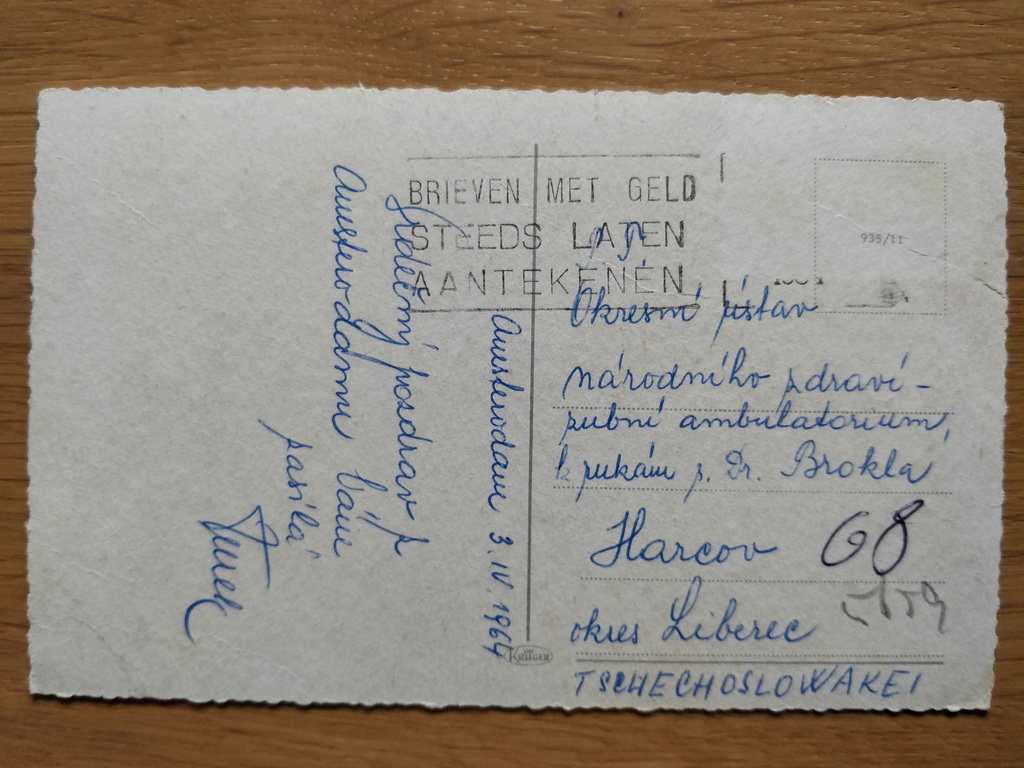 BRIEVEN MET GELD
STEEDS LATEN
AANTEKENEN
935/11
Amsterodam 3.IV.1964
Srdečný pozdrav z
Amsterodamu Vám
zasílá
Okresní ústav
národního zdraví -
zubní ambulatorium,
k rukám p. Dr. Brokla
Harcov 68
okres Liberec
TSCHECHOSLOWAKEI
KRÜGER